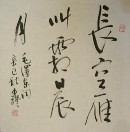 長空雁
叫霜晨
月
毛澤東詞